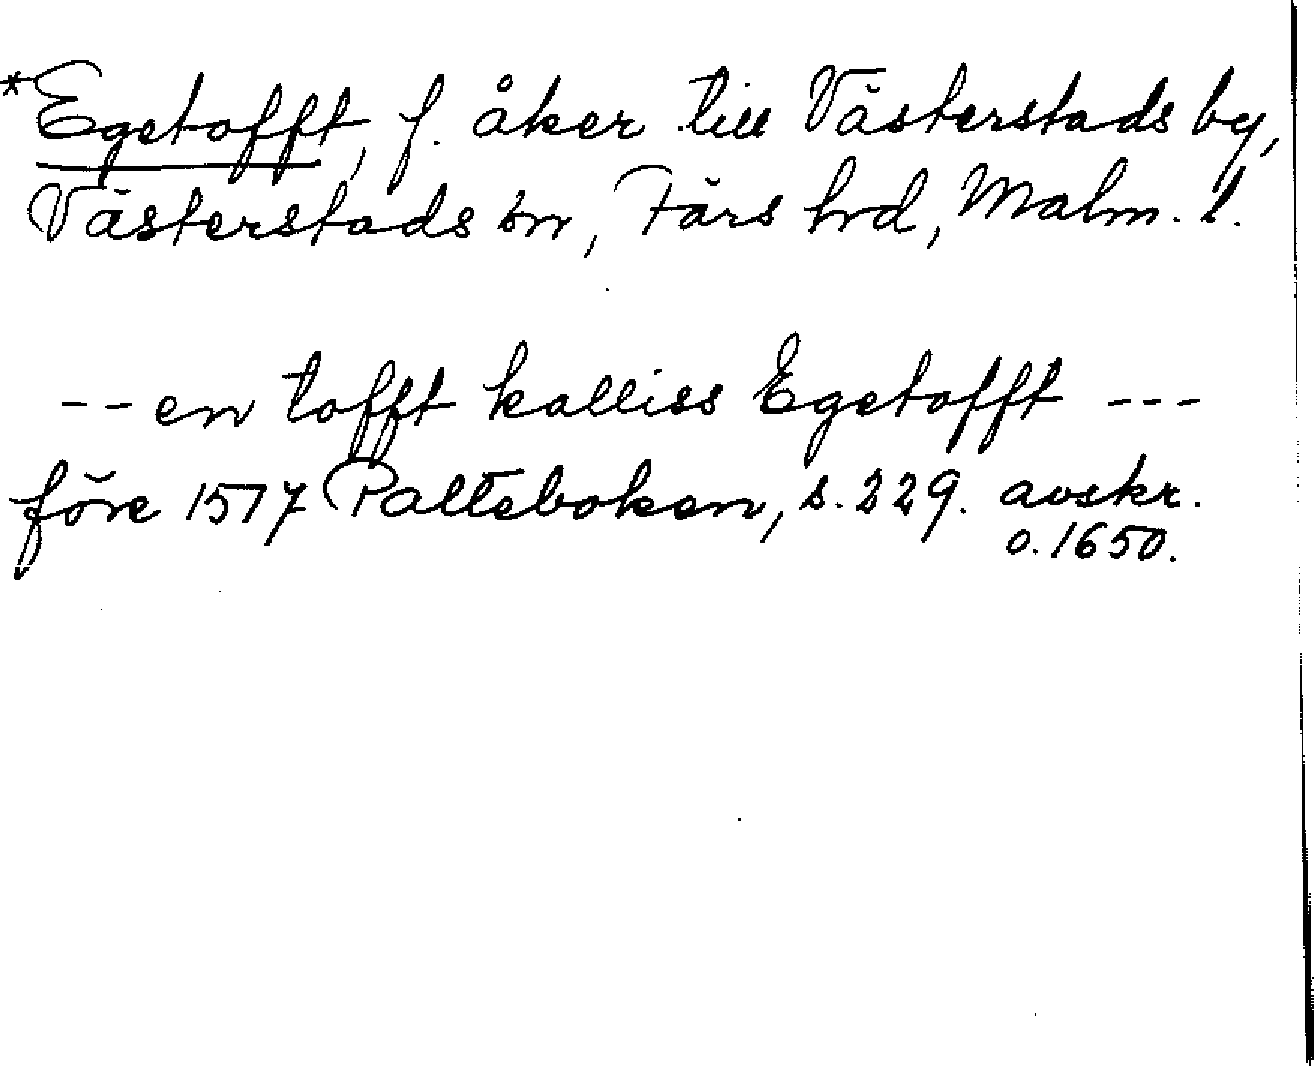 *Egetofft, f. åker till Västerstads by,
Västerstads sn, Färs hrd, Malm. l.
-- en tofft kalliss Egetofft ---
före 1517 Palteboken, s. 229. avskr.
o. 1650.